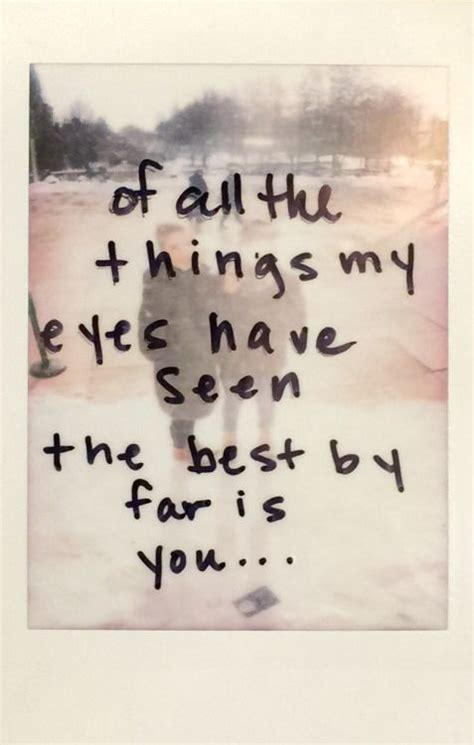 of all the
things my
eyes have
seen
the best by
far is
you...